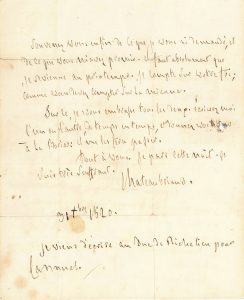 Souvenez vous enfin de ce que je vous ai demandé, et
de ce que vous m'avez promis. Il faut absolument que
je revienne au printemps. Je compte sur votre foi,
comme vous devez compter sur la mienne.
Sur ce, je vous embrasse tous les deux. Ecrivez moi
de temps en temps, et
à la
Tout à vous. Je pars cette nuit. Je
suis très souffrant.
Chateaubriand
31 Xbre 1820.
Je viens d'écrire au Duc de Richelieu pour